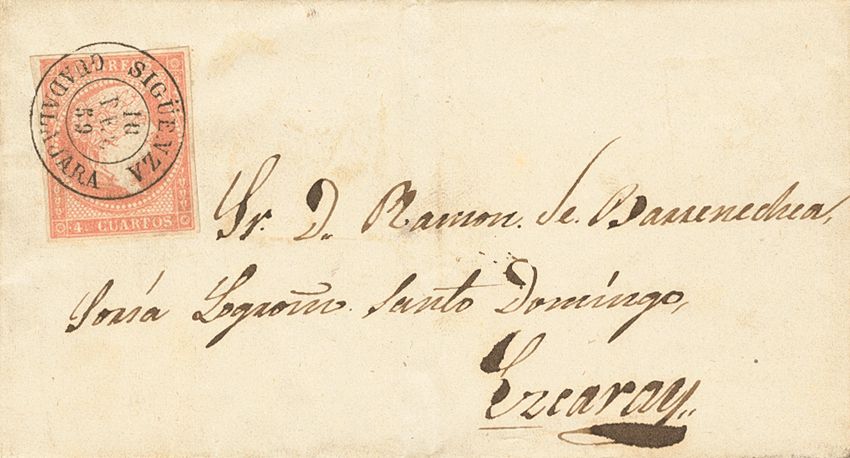 CORREOS
SIGÜENZA
GUADALAJARA
18
59
4 CUARTOS
Sr. D. Ramon de Barrenechea,
Soria Logroño Santo Domingo,
Ezcaray